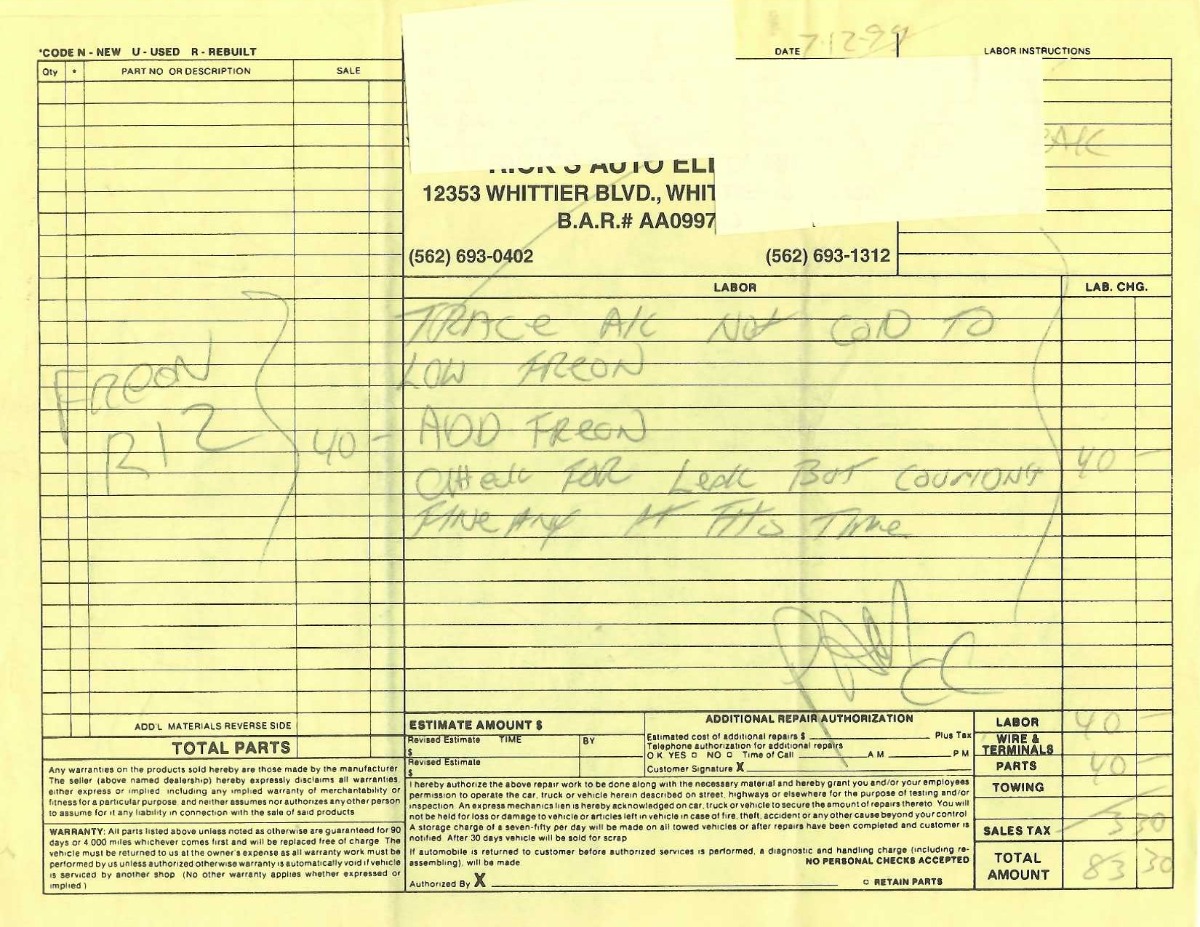 *CODE N - NEW U - USED R - REBUILT
DATE 7-12-99
LABOR INSTRUCTIONS
Qty * PART NO OR DESCRIPTION SALE
A/C
RICK'S AUTO EL
12353 WHITTIER BLVD., WHIT
B.A.R.# AA0997
(562) 693-0402 (562) 693-1312
LABOR LAB. CHG.
TRACE A/C NOT COD TO
LOW FREON
FREON
R12 40 -
ADD FREON
CHECK FOR LEAK BUT 40 -
ANY AT THIS TIME
ADD'L MATERIALS REVERSE SIDE
TOTAL PARTS
Any warranties on the products sold hereby are those made by the manufacturer
The seller (above named dealership) hereby expressly disclaims all warranties,
either express or implied including any implied warranty of merchantability or
fitness for a particular purpose, and neither assumes nor authorizes any other person
to assume for it any liability in connection with the sale of said products
WARRANTY: All parts listed above unless noted as otherwise are guaranteed for 90
days or 4.000 miles whichever comes first and will be replaced free of charge. The
vehicle must be returned to us at the owner's expense as all warranty work must be
performed by us unless authorized otherwise warranty is automatically void if vehicle
is serviced by another shop (No other warranty applies whether expressed or
implied )
ESTIMATE AMOUNT $
Revised Estimate TIME BY
$
Revised Estimate
$
ADDITIONAL REPAIR AUTHORIZATION
Estimated cost of additional repairs $ Plus Tax
Telephone authorization for additional repairs
O K YES □ NO □ Time of Call A M P M
Customer Signature X
I hereby authorize the above repair work to be done along with the necessary material and hereby grant you and/or your employees
permission to operate the car, truck or vehicle herein described on street, highways or elsewhere for the purpose of testing and/or
inspection. An express mechanics lien is hereby acknowledged on car, truck or vehicle to secure the amount of repairs thereto. You will
not be held for loss or damage to vehicle or articles left in vehicle in case of fire, theft, accident or any other cause beyond your control
A storage charge of a seven-fifty per day will be made on all towed vehicles or after repairs have been completed and customer is
notified. After 30 days vehicle will be sold for scrap
If automobile is returned to customer before authorized services is performed, a diagnostic and handling charge (including re-
assembling), will be made NO PERSONAL CHECKS ACCEPTED
Authorized By X □ RETAIN PARTS
LABOR 40 -
WIRE & TERMINALS
PARTS 40 -
TOWING
SALES TAX 3 30
TOTAL AMOUNT 83 30